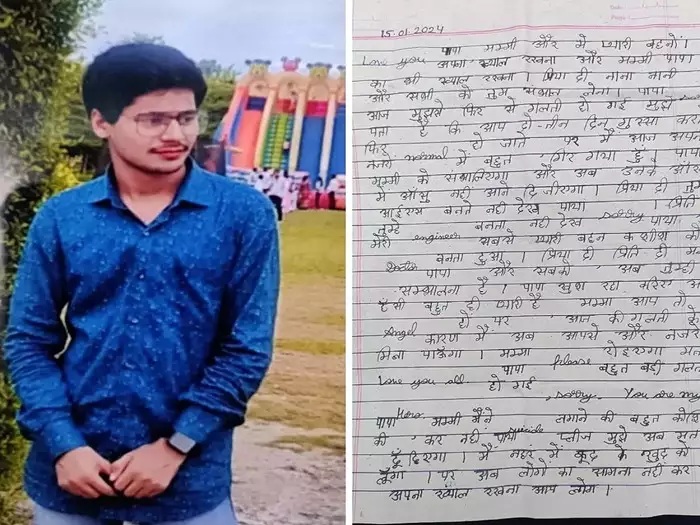 15.01.2024
पापा मम्मी और मेरी प्यारी बहनों।
Love you अपना ख्याल रखना और मम्मी पापा
का भी ख्याल रखना। प्रिया दी नाना नानी
और सभी को तुम सम्भाल लेना। पापा
आज मुझसे फिर से गलती हो गई मुझे
पता है कि आप दो-तीन दिन गुस्सा
फिर normal हो जाते पर मैं आज
नजरों में बहुत गिर गया हूँ। पापा
मम्मी को संभालिएगा और अब उनके
में आँसू नहीं आने दीजिएगा। प्रिया दी
आईएएस बनते नहीं देख पाया। प्रिति
तुम्हे engineer बनता नहीं देख पाया sorry
मेरी सबसे प्यारी बहन
doctor बनता हुआ। प्रिया दी प्रिति दी
पापा और सबको अब तुम्ही
सम्भालना है। पापा खुश रहा करिए
हँसी बहुत ही प्यारी है मम्मी आप तो
Angel हो पर आज की गलती के
कारण मैं अब आपसे और नजर
मिला पाऊँगा। मम्मी रोइएगा मत
पापा Please बहुत बड़ी
Love you all हो गई
Sorry. You are my
पापा Hero. मम्मी मैंने लगाने की बहुत
की कर नहीं पाया प्लीज मुझे अब मत
ढूँढिएगा। मैं नहर में कूद के खुद को
लूँगा। पर अब लोगों का सामना नहीं कर
अपना ख्याल रखना आप लोग।